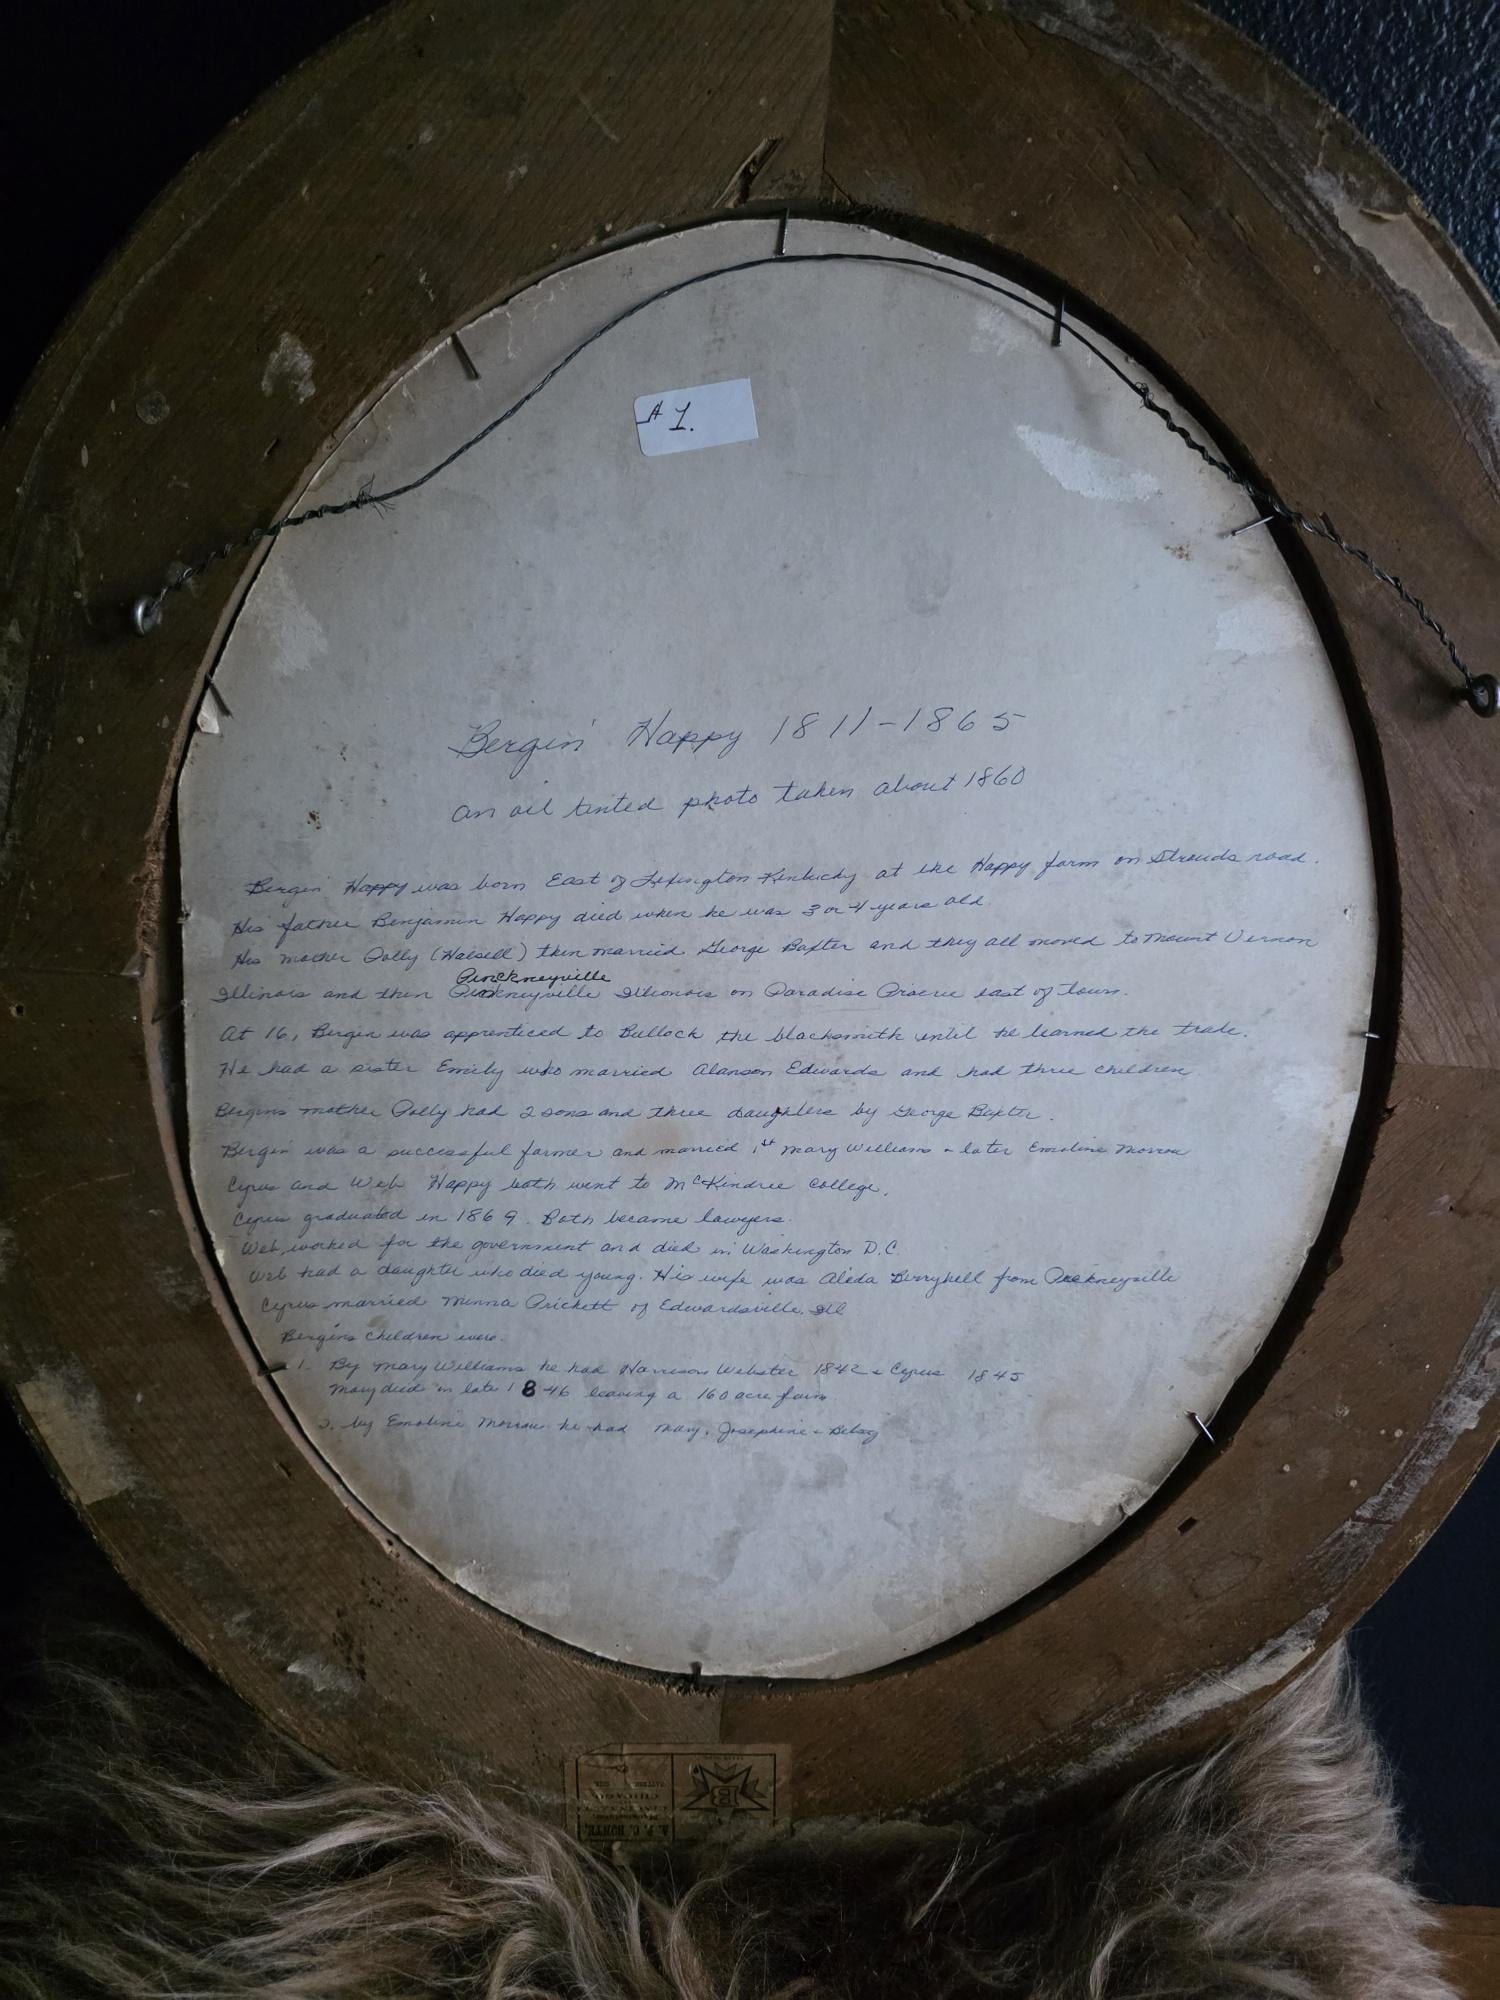 A 1.
Bergin Happy 1811-1865
an oil tinted photo taken about 1860
Bergin Happy was born East of Lexington Kentucky at the Happy farm on Strouds road.
His father Benjamin Happy died when he was 3 or 4 years old
His mother Polly (Halsell) then married George Baxter and they all moved to Mount Vernon
Pinckneyville
Illinois and then Pinckneyville Illionois on Paradise Prarie east of town.
At 16, Bergin was apprenticed to Bullock the blacksmith until he learned the trade.
He had a sister Emily who married Alanson Edwards and had three children
Bergins mother Polly had 2 sons and three daughters by George Baxter.
Bergin was a successful farmer and married 1st Mary Williams & later Emoline Morrow
Cyrus and Web Happy both went to McKindree College.
Cyrus graduated in 1869. Both became lawyers.
Web worked for the government and died in Washington D.C.
Web had a daughter who died young. His wife was Aleda Berryhell from Pinckneyville
Cyrus married Minna Prickett of Edwardsville, Ill
Bergins children were.
1. By Mary Williams he had Harrison Webster 1842 & Cyrus 1845
Mary died in late 1846 leaving a 160 acre farm
2. by Emoline Morrow he had Mary, Josephine & Betsy
B
A. F. C. BONTE,
CINCINNATI
CHICAGO